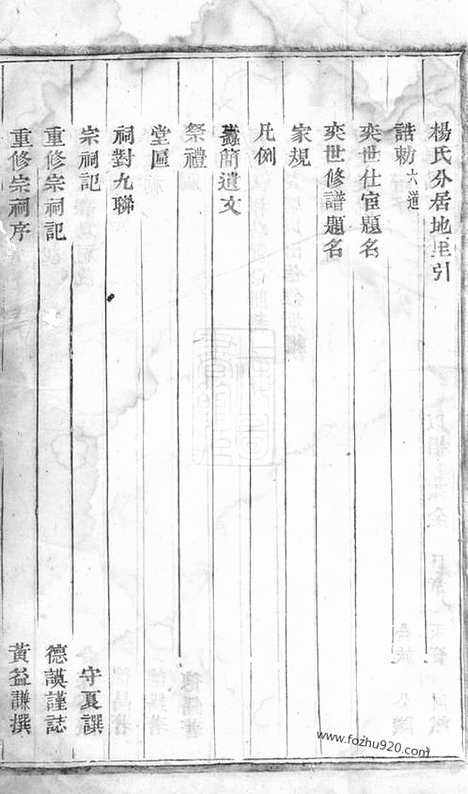 楊氏分居地里引
誥勅六道
奕世仕宦題名
奕世修譜題名
家規
凡例
蠹簡遺文
祭禮
堂匾
祠對九聯
宗祠記 守夏譔
重修宗祠記 德謨謹誌
重修宗祠序 黃益謙撰
www.fozhu920.com